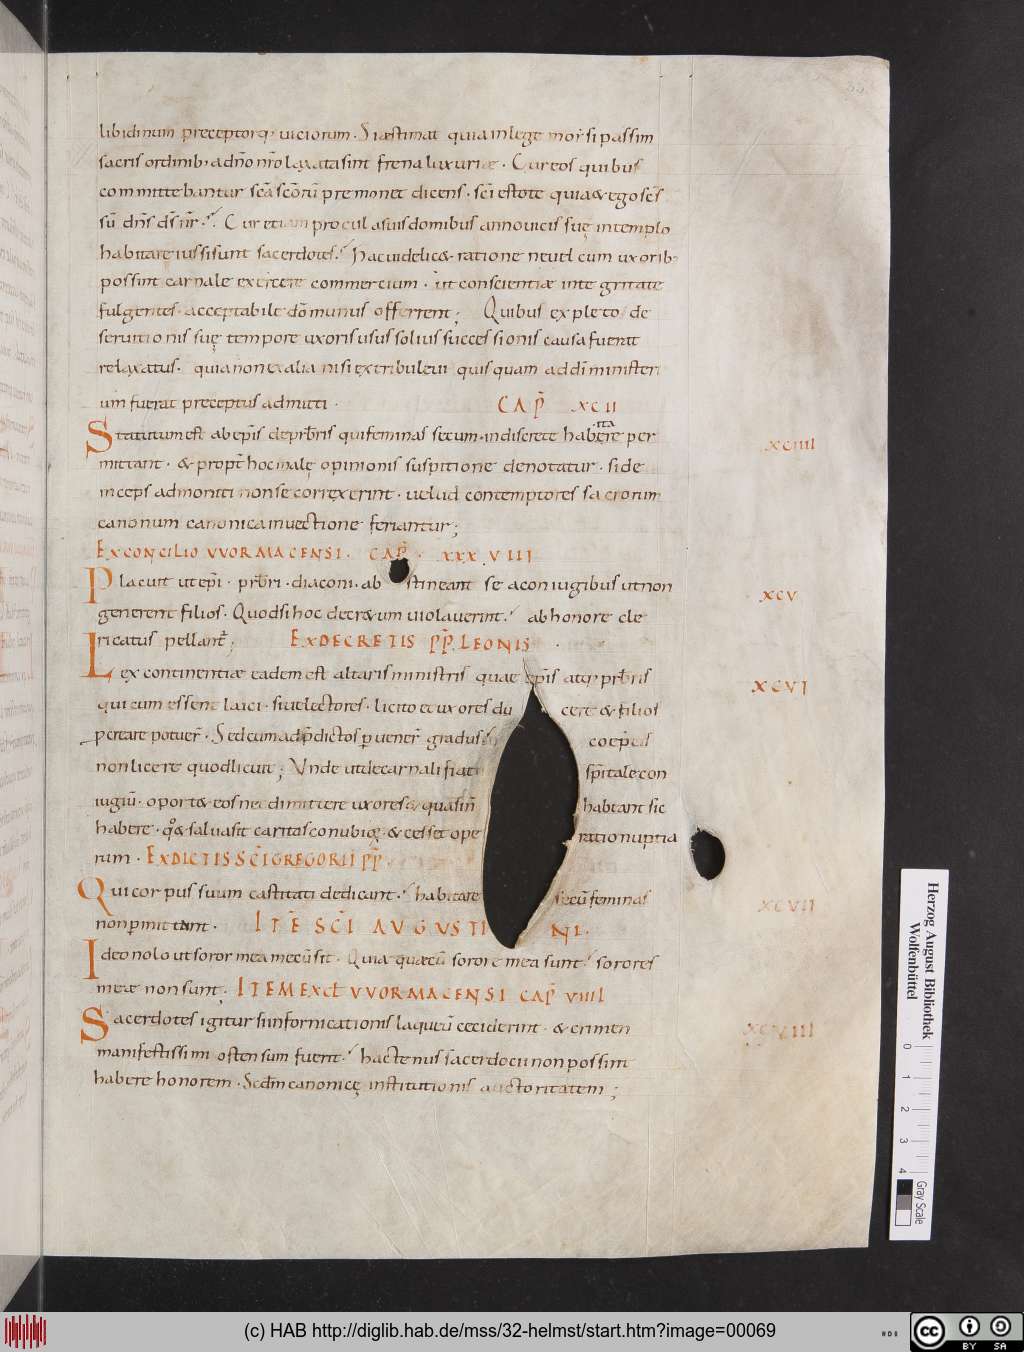 libidinum preceptorq; uiciorum · Si æstimat quia in lege moȳsi passim
sacris ordinib; ad nō nr̄o laxata sint frena luxuriæ · Cur eos quibus
committebantur sc̄a sc̄orū premonet dicens · sc̄i estote quia & ego sc̄s
sū dn̄s ds̄ ur̄ · Cur etiam procul a suis domibus anno uicis suę in templo
habitare iussi sunt sacerdotes · hac uidelic& ratione ne uel cum uxorib;
possint carnale exercere commercium · ut conscientiæ integritate
fulgentes · acceptabile dō munus offerrent; Quibus expleto de
seruitionis suę tempore uxoris usus solius successionis causa fuerit
relaxatus · quia non ex alia nisi ex tribu leui quisquam ad dī ministeri
um fuerat preceptus admitti ·
CAP̄ XCII
Statutum est ab ep̄is de prb̄ris qui feminas secum indiscrete habere per
ita
xciiii
mittant · & propt̄ hoc malę opinionis suspitione denotatur · si de
inceps admoniti non se correxerint · uelud contemptores sacrorum
canonum canonica inuectione feriantur;
EX CONCILIO VVORMACENSI · CAP̄ · XXX VIIII
Placuit ut ep̄i · prb̄ri · diaconi · ab stineant se a coniugibus ut non
xcv
generent filios · Quod si hoc decr&um uiolauerint · ab honore cle
ricatus pellant̄;
EX DECRETIS PP̄. LEONIS
Lex continentiæ eadem est altaris ministris quae ep̄is atq; prb̄ris
xcvi
qui cum essent laici · siue lectores · licito et uxores du cere & filios
pcreare potuer̄ · Sed cum ad p̄dictos puener̄ gradus coep̄ eis
non licere quod licuit; Vnde ut de carnali fiat sp̄itale con
iugiū · oport& eos nec dimittere uxores & quasi n̄ habeant sic
habere · qo& saluasit caritas conubioꝝ · & cesset ope ratio nuptia
rum · EX DICTIS SC̄I GREGORII PP̄.
Qui corpus suum castitati dedicant · habitare secū feminas
xcvii
non pmittant · ITĒ SC̄I AVGVSTI NI ·
Ideo nolo ut soror mea mecū sit · Quia quæ cū sorore mea sunt · sorores
meæ non sunt · ITEM EX C̄L VVORMACENSI CAP̄ VIIII
Sacerdotes igitur si in fornicationis laqueū ceciderint · & crimen
xcviii
manifestissimi ostensum fuerit · hactenus sacerdocii non possint
habere honorem · Sc̄dm canonicę institutionis auctoritatem;
Herzog August Bibliothek
Wolfenbüttel
0 1 2 3 4
Gray Scale
(c) HAB http://diglib.hab.de/mss/32-helmst/start.htm?image=00069
cc BY SA